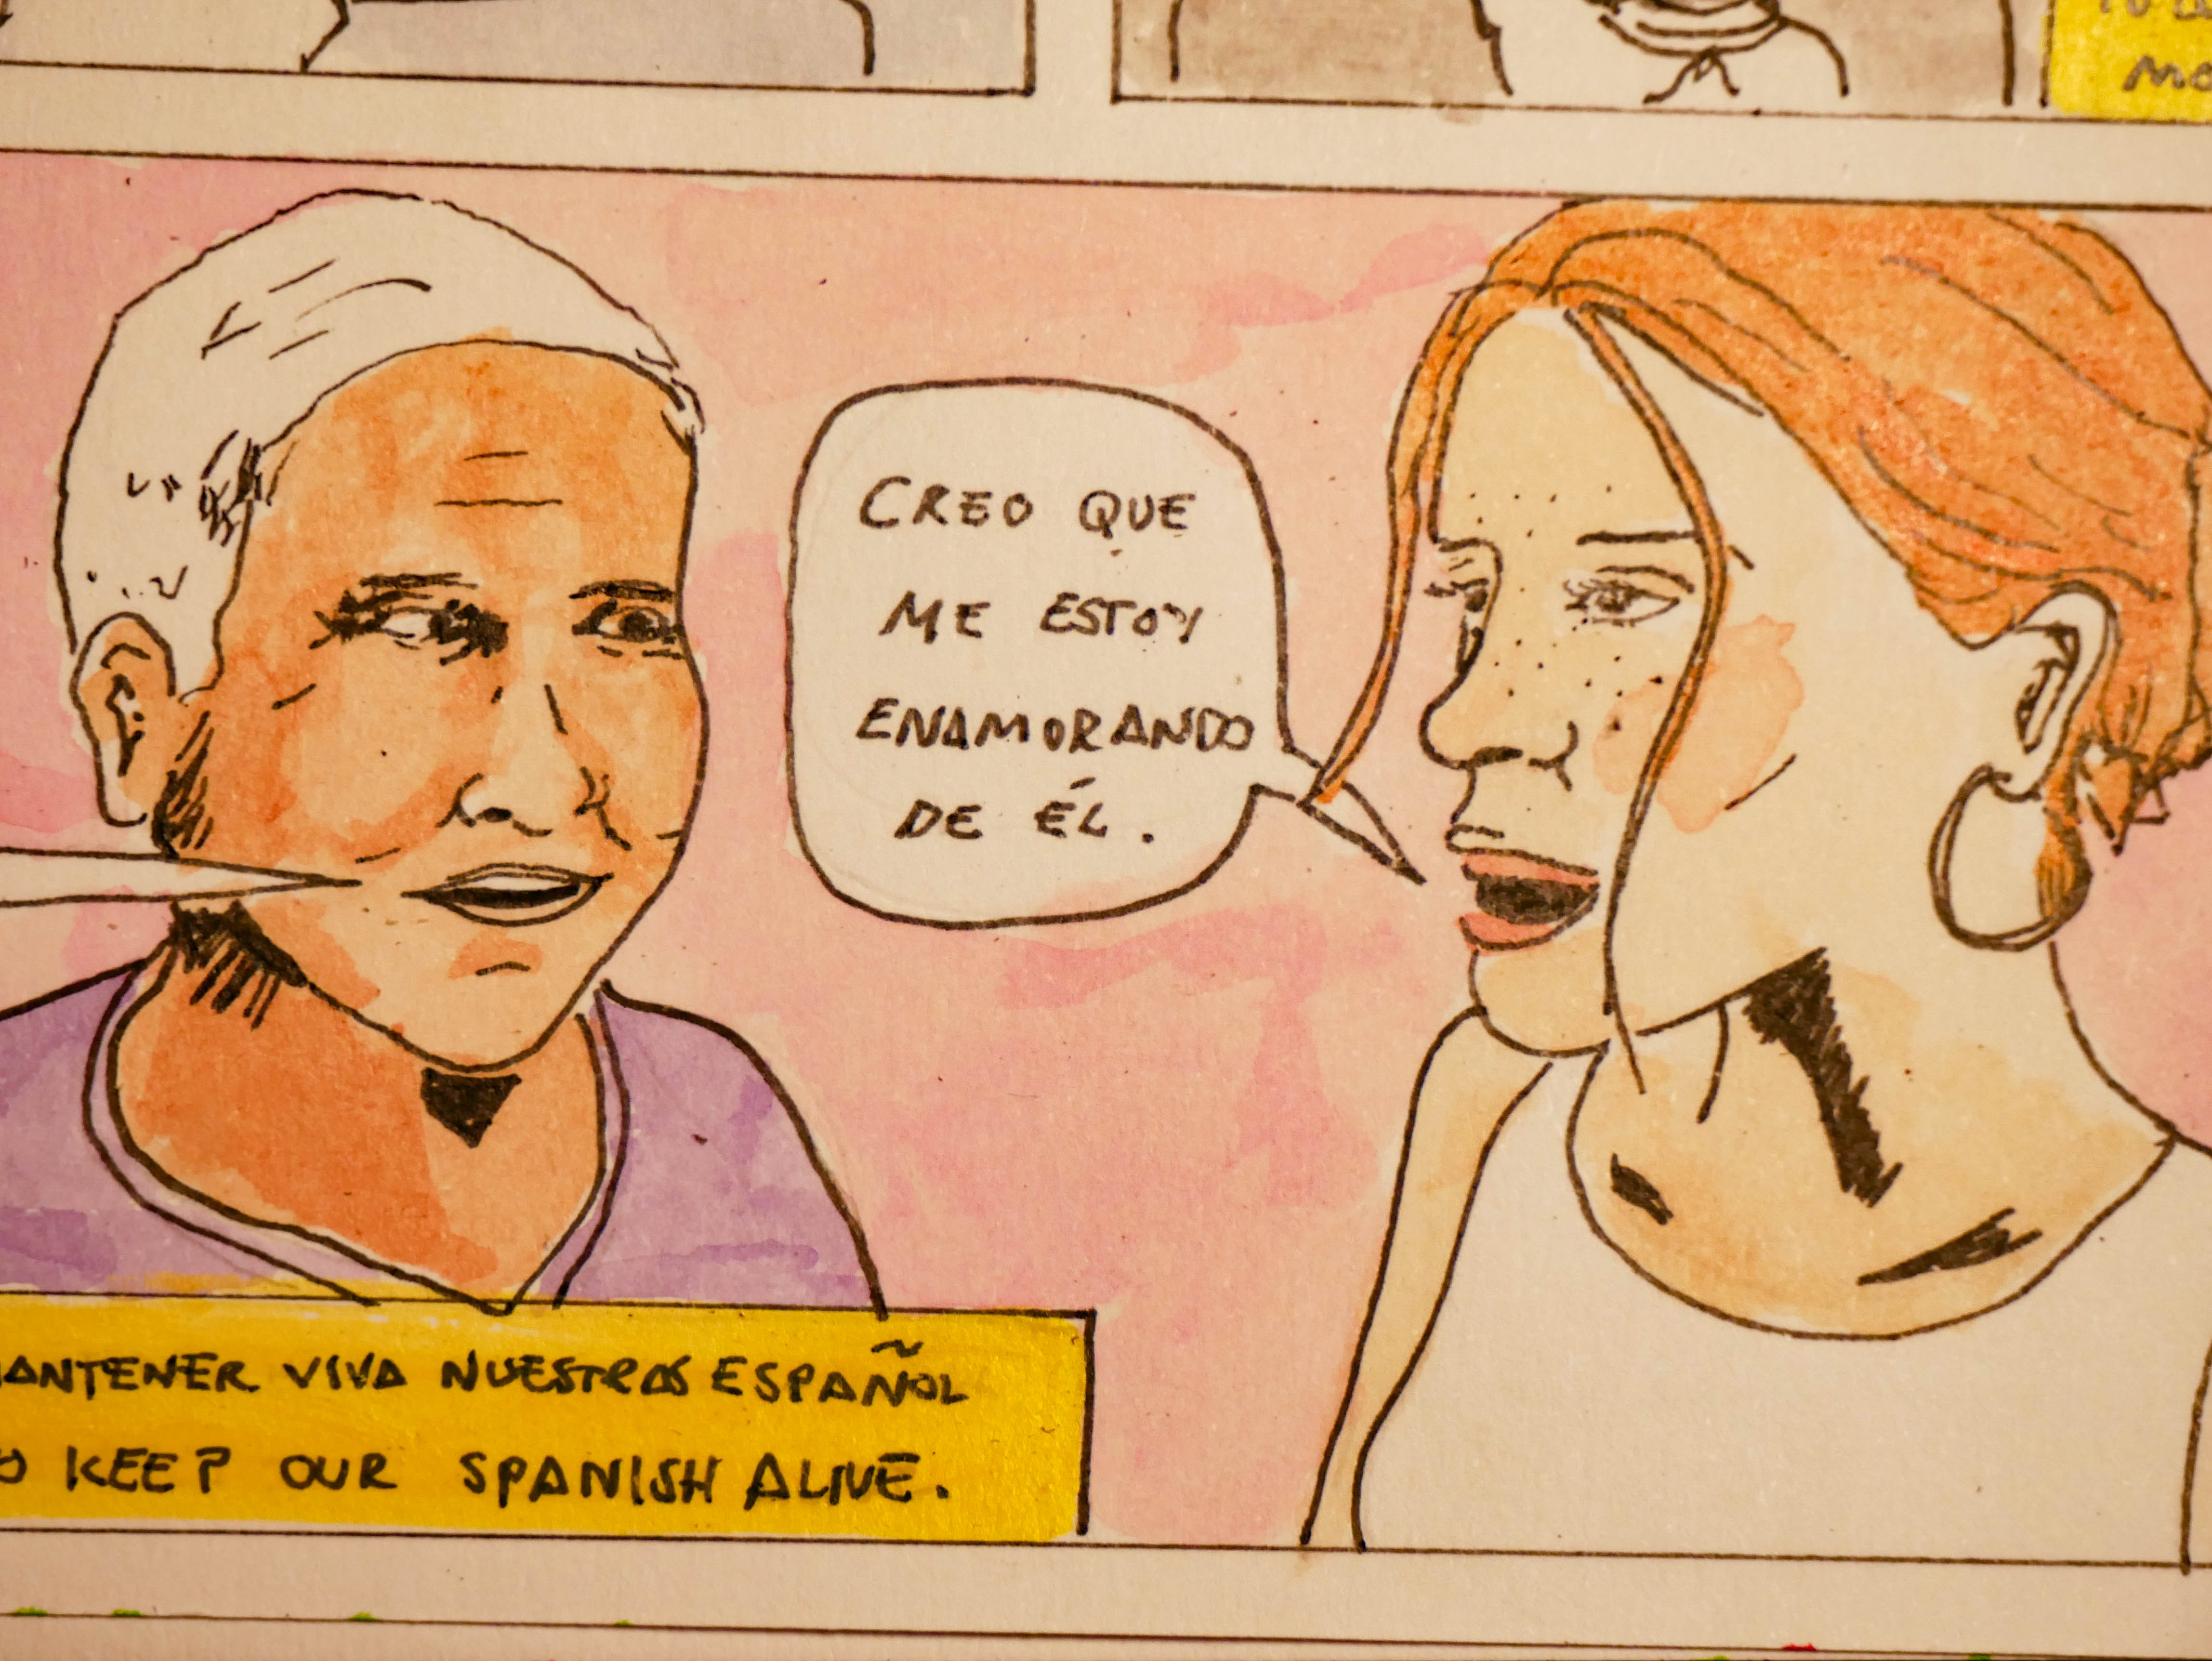 CREO QUE
ME ESTOY
ENAMORANDO
DE ÉL.
MANTENER VIVA NUESTROS ESPAÑOL
KEEP OUR SPANISH ALIVE.